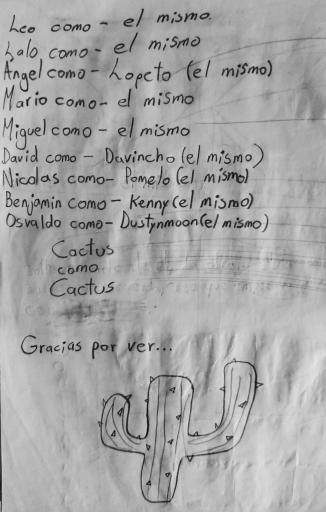 Leo como - el mismo.
Lalo como - el mismo
Angel como - Lopeto (el mismo)
Mario como - el mismo
Miguel como - el mismo
David como - Davincho (el mismo)
Nicolas como - Pomelo (el mismo)
Benjamin como - Kenny (el mismo)
Osvaldo como - Dustynmoon (el mismo)
Cactus
como
Cactus
Gracias por ver...